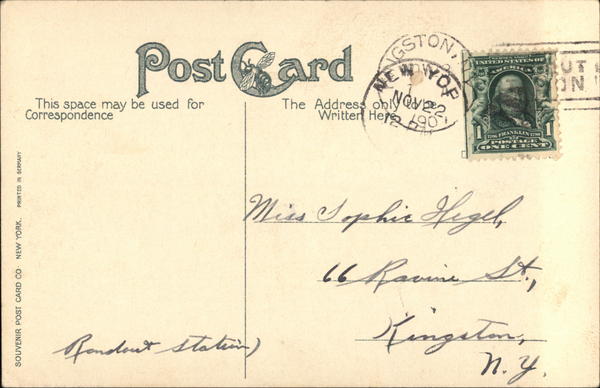 Post Card
This space may be used for
Correspondence
The Address only
Written Here
KINGSTON,
NEW YOR
NOV 22
12 PM
190
UT
ON
UNITED STATES OF
AMERICA
1 FRANKLIN 1
POSTAGE
ONE CENT
Miss Sophie Hegel,
66 Ravine St.,
Kingston,
N.Y.
Rondout Station)
SOUVENIR POST CARD CO. NEW YORK. PRINTED IN GERMANY